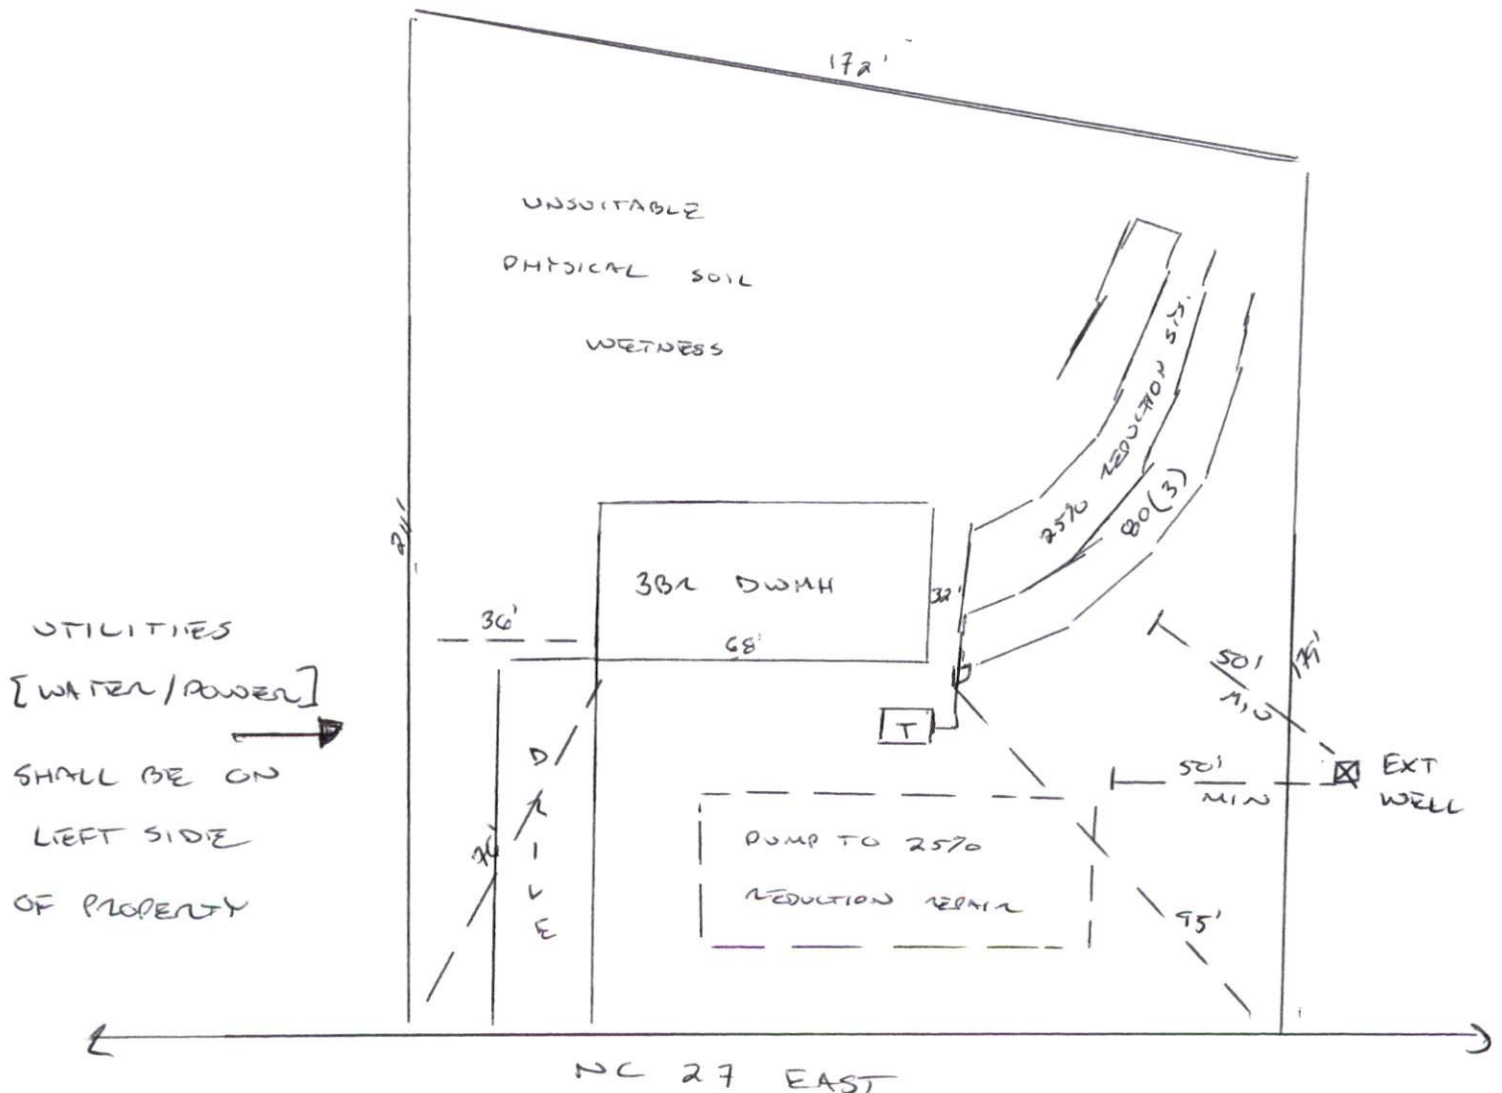 172'
UNSUITABLE
PHYSICAL SOIL
WETNESS
25% REDUCTION SYS.
80(3)
3BR DWMH
32'
36'
68'
UTILITIES
[WATER/POWER]
SHALL BE ON
LEFT SIDE
OF PROPERTY
DRIVE
T
50'
MIN
50'
MIN
EXT
WELL
PUMP TO 25%
REDUCTION REPAIR
95'
NC 27 EAST